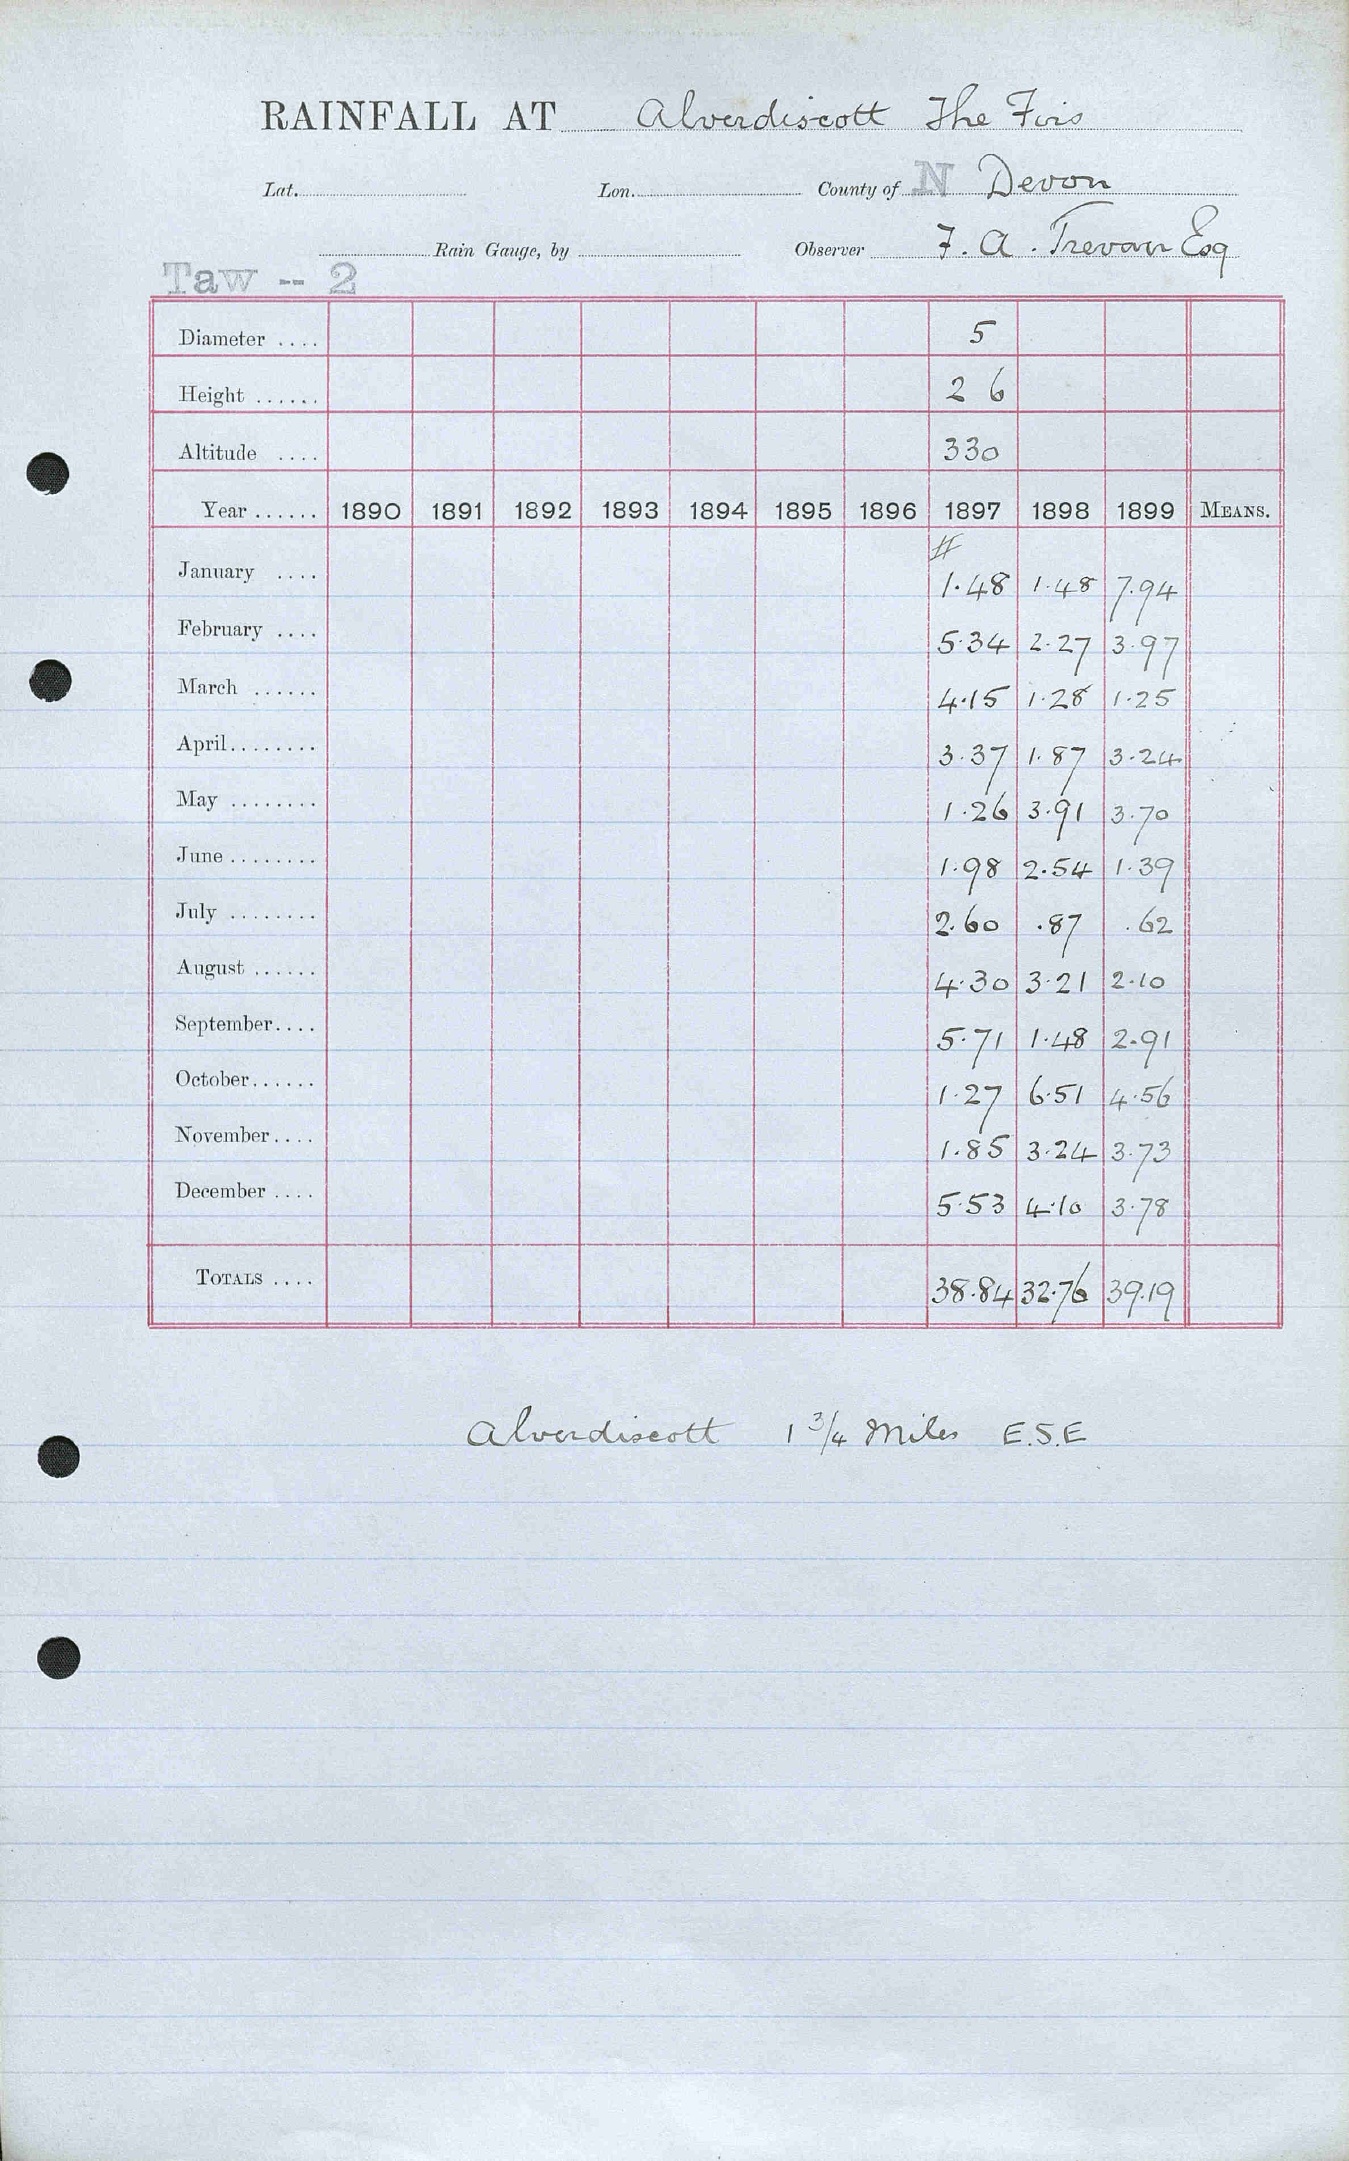 RAINFALL AT Alverdiscott The Firs
Lat. Lon. County of N Devon
Rain Gauge, by Observer F. A. Trevan Esq
Taw -- 2
Diameter .... 5
Height ...... 2 6
Altitude .... 330
Year ...... 1890 1891 1892 1893 1894 1895 1896 1897 1898 1899 MEANS.
#
January .... 1.48 1.48 7.94
February .... 5.34 2.27 3.97
March ...... 4.15 1.28 1.25
April........ 3.37 1.87 3.24
May ........ 1.26 3.91 3.70
June ........ 1.98 2.54 1.39
July ........ 2.60 .87 .62
August ...... 4.30 3.21 2.10
September.... 5.71 1.48 2.91
October...... 1.27 6.51 4.56
November.... 1.85 3.24 3.73
December .... 5.53 4.10 3.78
TOTALS .... 38.84 32.76 39.19
Alverdiscott 1 3/4 Miles E.S.E